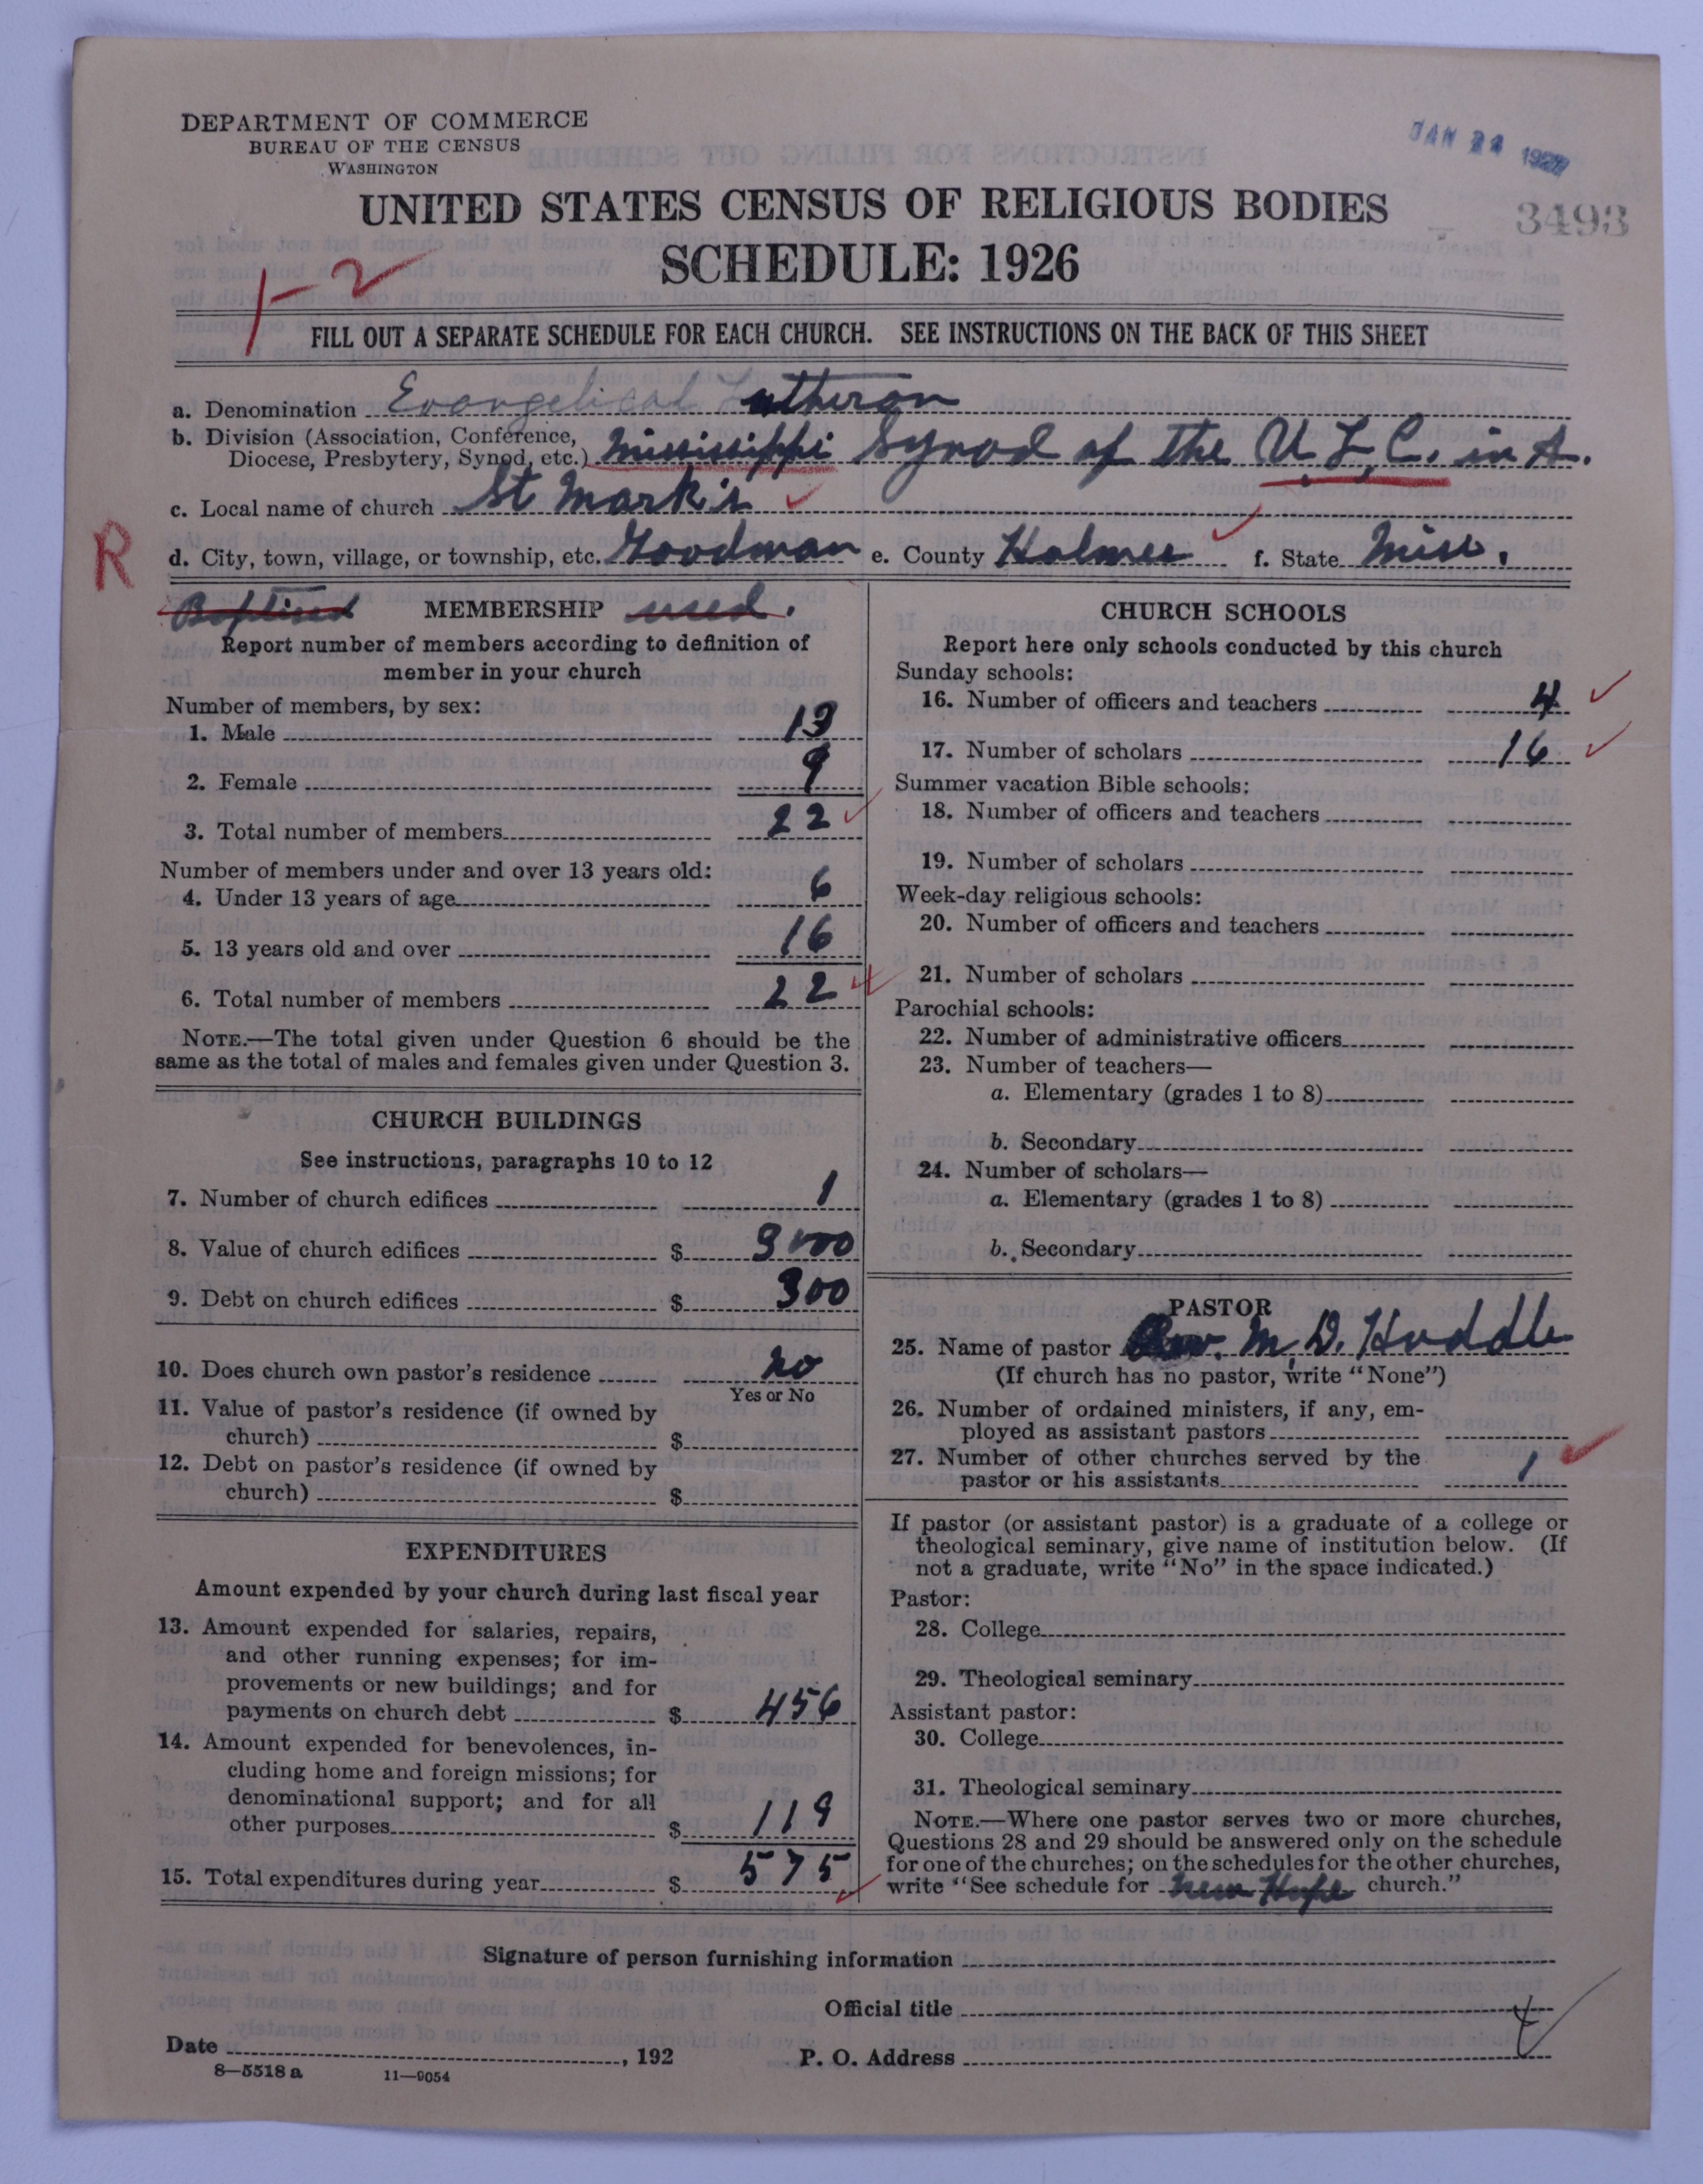 DEPARTMENT OF COMMERCE
BUREAU OF THE CENSUS
WASHINGTON
JAN 22
3493
UNITED STATES CENSUS OF RELIGIOUS BODIES
SCHEDULE: 1926
1-2
FILL OUT A SEPARATE SCHEDULE FOR EACH CHURCH. SEE INSTRUCTIONS ON THE BACK OF THIS SHEET
a. Denomination Evangelical Lutheran
b. Division (Association, Conference, Diocese, Presbytery, Synod, etc.) Mississippi Synod of the U. L. C. in A.
c. Local name of church St Mark's
R
d. City, town, village, or township, etc. Goodman e. County Holmes f. State Miss.
Baptised MEMBERSHIP used.
Report number of members according to definition of
member in your church
Number of members, by sex:
1. Male 13
2. Female 9
3. Total number of members 22
Number of members under and over 13 years old:
4. Under 13 years of age 6
5. 13 years old and over 16
6. Total number of members 22
NOTE.—The total given under Question 6 should be the
same as the total of males and females given under Question 3.
CHURCH BUILDINGS
See instructions, paragraphs 10 to 12
7. Number of church edifices 1
8. Value of church edifices $ 3000
9. Debt on church edifices $ 300
10. Does church own pastor's residence no
Yes or No
11. Value of pastor's residence (if owned by
church) $
12. Debt on pastor's residence (if owned by
church) $
EXPENDITURES
Amount expended by your church during last fiscal year
13. Amount expended for salaries, repairs,
and other running expenses; for im-
provements or new buildings; and for
payments on church debt $ 456
14. Amount expended for benevolences, in-
cluding home and foreign missions; for
denominational support; and for all
other purposes $ 119
15. Total expenditures during year $ 575
CHURCH SCHOOLS
Report here only schools conducted by this church
Sunday schools:
16. Number of officers and teachers 4
17. Number of scholars 16
Summer vacation Bible schools:
18. Number of officers and teachers
19. Number of scholars
Week-day religious schools:
20. Number of officers and teachers
21. Number of scholars
Parochial schools:
22. Number of administrative officers
23. Number of teachers—
a. Elementary (grades 1 to 8)
b. Secondary
24. Number of scholars—
a. Elementary (grades 1 to 8)
b. Secondary
PASTOR
25. Name of pastor Rev. M. D. Huddle
(If church has no pastor, write "None")
26. Number of ordained ministers, if any, em-
ployed as assistant pastors
27. Number of other churches served by the
pastor or his assistants 1
If pastor (or assistant pastor) is a graduate of a college or
theological seminary, give name of institution below. (If
not a graduate, write "No" in the space indicated.)
Pastor:
28. College
29. Theological seminary
Assistant pastor:
30. College
31. Theological seminary
NOTE.—Where one pastor serves two or more churches,
Questions 28 and 29 should be answered only on the schedule
for one of the churches; on the schedules for the other churches,
write "See schedule for New Hope church."
Signature of person furnishing information
Official title
Date , 192
P. O. Address
8—5518 a 11—9054